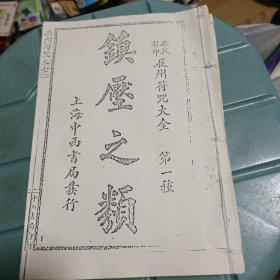 辰州符咒大全 第一種
鎮壓之類
上海中西書局發行
辰州符咒大全